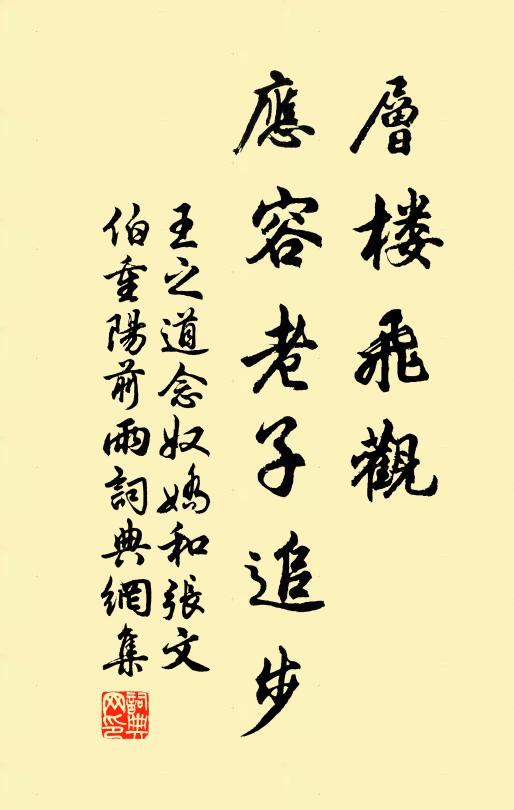 層楼飛觀
應容老子追步
王之道念奴嬌和張文
伯重陽前雨詞典網集
詞典
网印